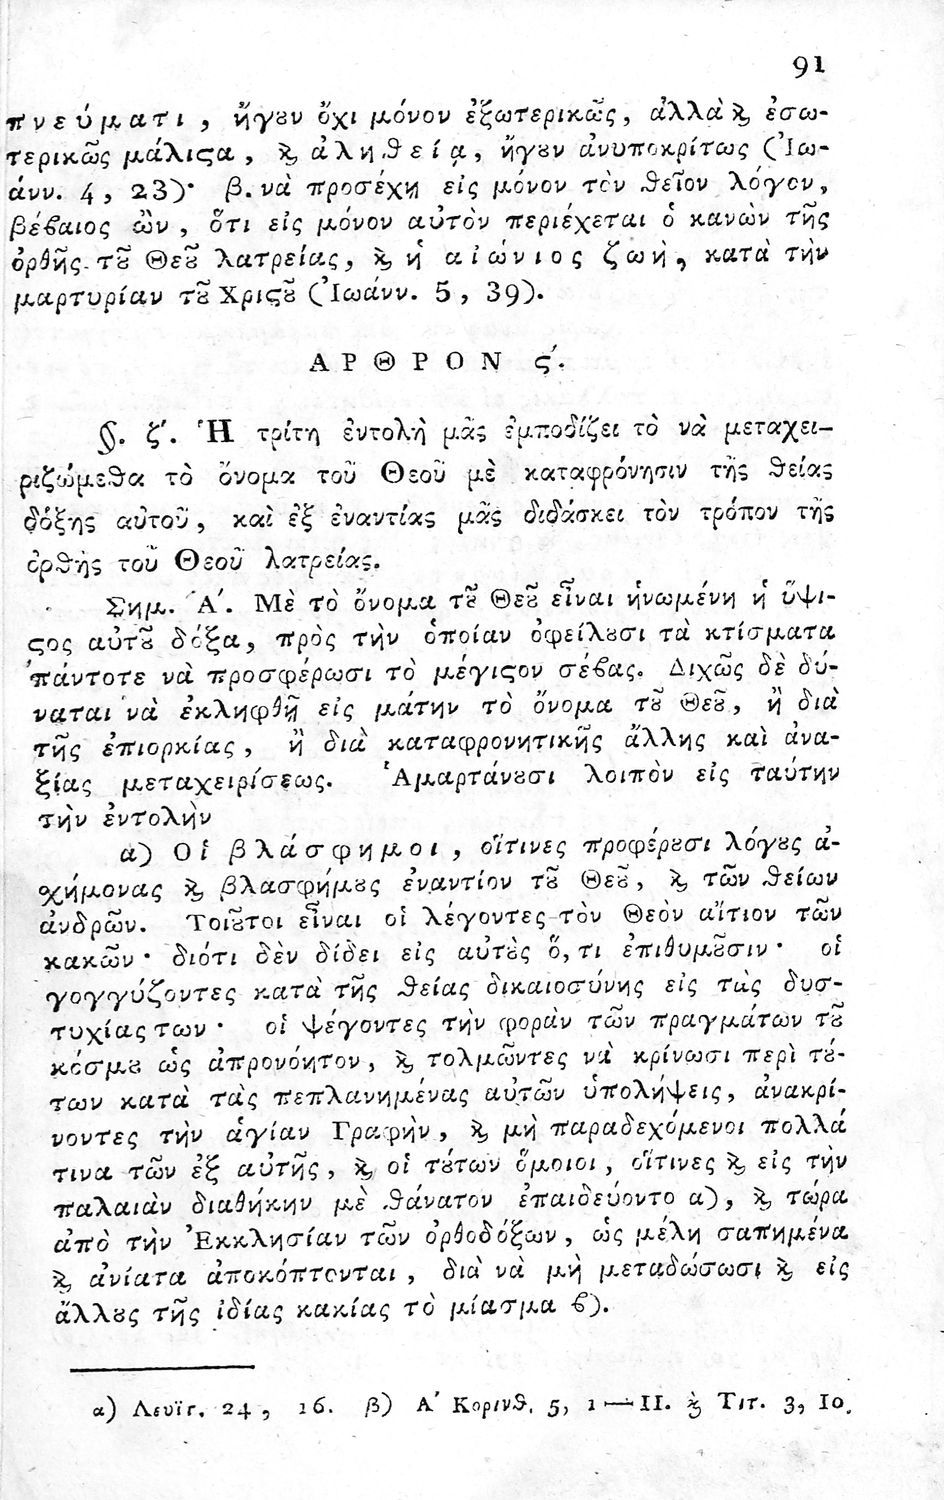 91
πνεύματι, ἤγȣν ὄχι μόνον ἐξωτερικῶς, ἀλλὰ ϗ ἐσω-
τερικῶς μάλιϛα, ϗ ἀληθείᾳ, ἤγȣν ἀνυποκρίτως (Ἰω-
άνν. 4, 23)· β. νὰ προσέχῃ εἰς μόνον τὸν θεῖον λόγον,
βέβαιος ὢν, ὅτι εἰς μόνον αὐτὸν περιέχεται ὁ κανὼν τῆς
ὀρθῆς τȣ͂ Θεȣ͂ λατρείας, ϗ ἡ αἰώνιος ζωὴ, κατὰ τὴν
μαρτυρίαν τȣ͂ Χριϛȣ͂ (Ἰωάνν. 5, 39).
ΑΡΘΡΟΝ ϛ΄.
§. ζ΄. Ἡ τρίτη ἐντολὴ μᾶς ἐμποδίζει τὸ νὰ μεταχει-
ριζώμεθα τὸ ὄνομα τοῦ Θεοῦ μὲ καταφρόνησιν τῆς θείας
δόξης αὐτοῦ, καὶ ἐξ ἐναντίας μᾶς διδάσκει τὸν τρόπον τῆς
ὀρθῆς τοῦ Θεοῦ λατρείας.
Σημ. Α΄. Μὲ τὸ ὄνομα τȣ͂ Θεȣ͂ εἶναι ἡνωμένη ἡ ὕψι-
ϛος αὐτȣ͂ δόξα, πρὸς τὴν ὁποίαν ὀφείλȣσι τὰ κτίσματα
πάντοτε νὰ προσφέρωσι τὸ μέγιϛον σέβας. Διχῶς δὲ δύ-
ναται νὰ ἐκληφθῇ εἰς μάτην τὸ ὄνομα τȣ͂ Θεȣ͂, ἢ διὰ
τῆς ἐπιορκίας, ἢ διὰ καταφρονητικῆς ἄλλης καὶ ἀνα-
ξίας μεταχειρίσεως. Ἁμαρτάνȣσι λοιπὸν εἰς ταύτην
τὴν ἐντολὴν
α) Οἱ βλάσφημοι, οἵτινες προφέρȣσι λόγȣς ἀ-
σχήμονας ϗ βλασφήμȣς ἐναντίον τȣ͂ Θεȣ͂, ϗ τῶν θείων
ἀνδρῶν. Τοιȣ͂τοι εἶναι οἱ λέγοντες τὸν Θεὸν αἴτιον τῶν
κακῶν· διότι δὲν δίδει εἰς αὐτȣ̀ς ὅ,τι ἐπιθυμȣ͂σιν· οἱ
γογγύζοντες κατὰ τῆς θείας δικαιοσύνης εἰς τὰς δυσ-
τυχίας των· οἱ ψέγοντες τὴν φορὰν τῶν πραγμάτων τȣ͂
κόσμȣ ὡς ἀπρονόητον, ϗ τολμῶντες νὰ κρίνωσι περὶ τȣ́-
των κατὰ τὰς πεπλανημένας αὐτῶν ὑπολήψεις, ἀνακρί-
νοντες τὴν ἁγίαν Γραφὴν, ϗ μὴ παραδεχόμενοι πολλά
τινα τῶν ἐξ αὐτῆς, ϗ οἱ τȣ́των ὅμοιοι, οἵτινες ϗ εἰς τὴν
παλαιὰν διαθήκην μὲ θάνατον ἐπαιδεύοντο α), ϗ τώρα
ἀπὸ τὴν Ἐκκλησίαν τῶν ὀρθοδόξων, ὡς μέλη σαπημένα
ϗ ἀνίατα ἀποκόπτονται, διὰ νὰ μὴ μεταδώσωσι ϗ εἰς
ἄλλȣς τῆς ἰδίας κακίας τὸ μίασμα β).
α) Λευϊτ. 24, 16. β) Α΄ Κορινθ. 5, 1—11. ϗ Τιτ. 3, 10.